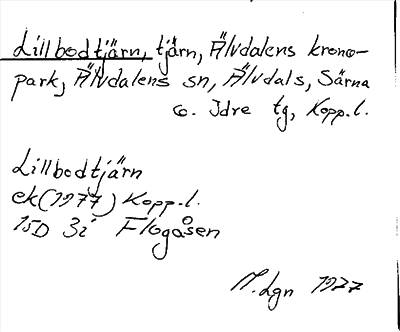 Lillbodtjärn, tjärn, Älvdalens krono-
park, Älvdalens sn, Älvdals, Särna
o. Idre tg, Kopp.l.
Lillbodtjärn
ek(1977) Kopp.l.
15D 3i Flogåsen
M.Lgn 1977